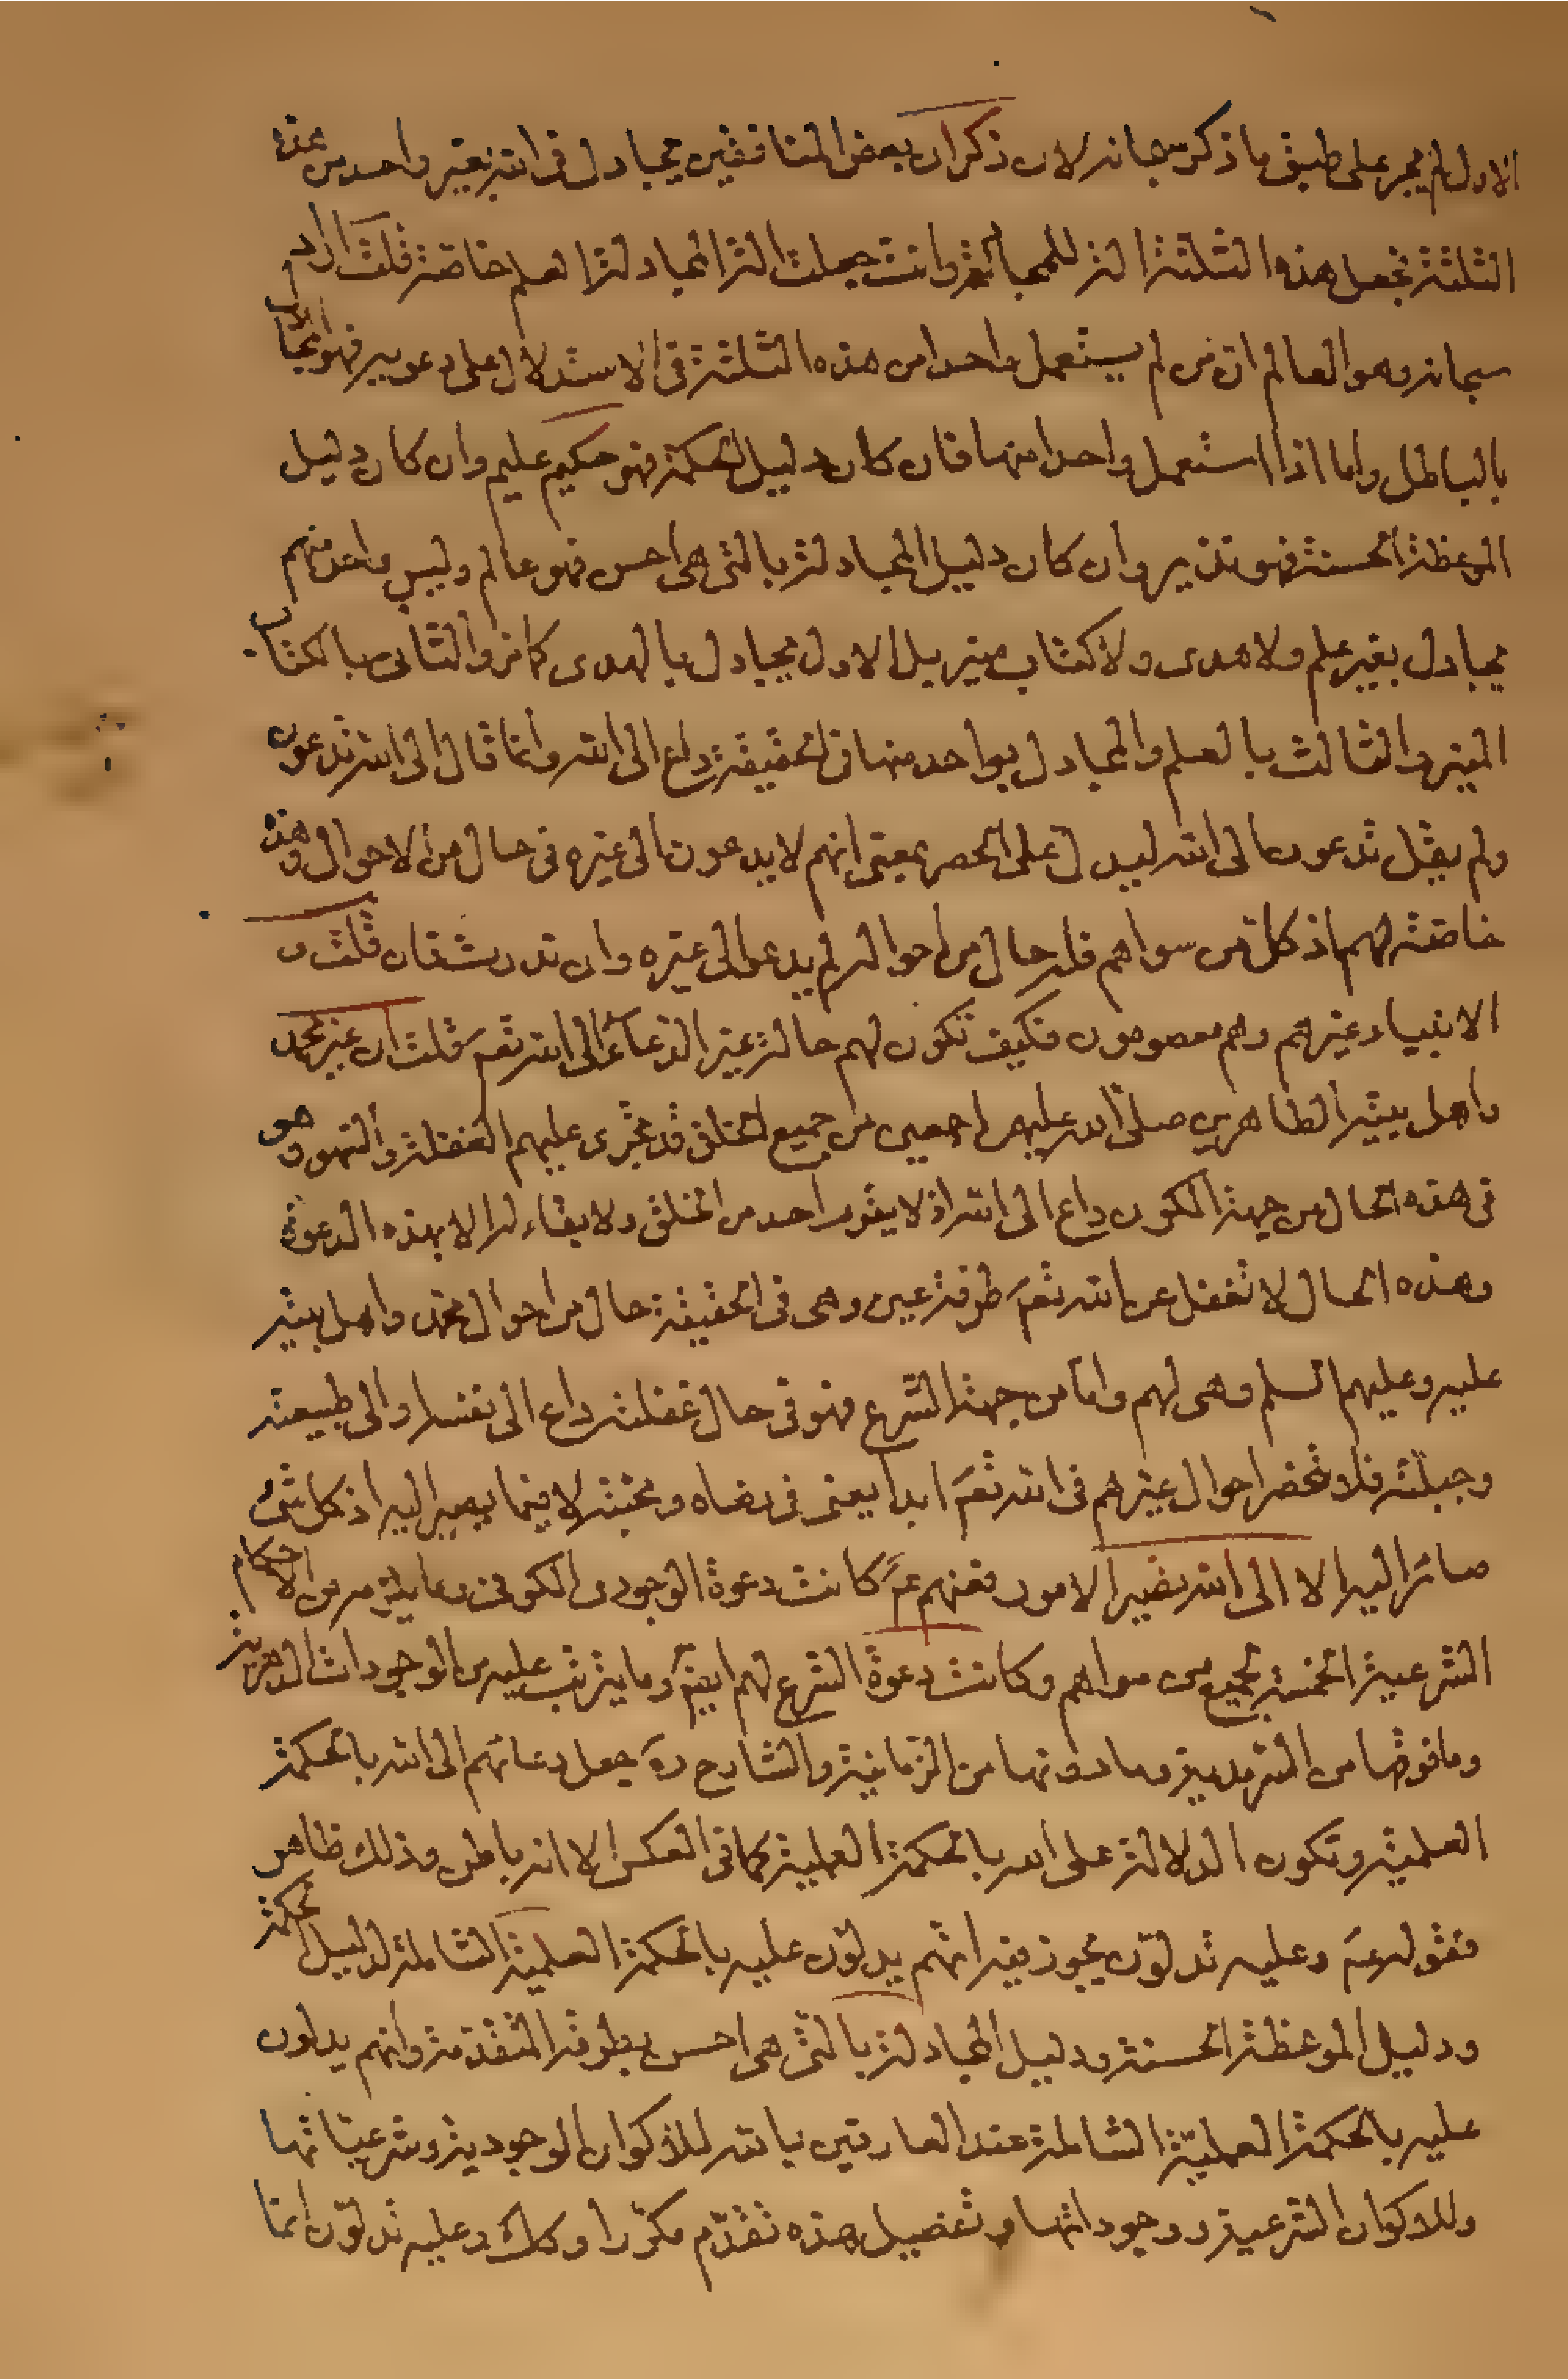 الاول لم يجر على طبق ما ذكر سبحانه لانه ذكر ان بعض المنافقين يجادل في الله بغير واحد من هذه
الثلثة فجعل هذه الثلثة الة للمجادلة وانت جعلت الة المجادلة العلم خاصة قلت اراد
سبحانه وهو العالم ان من لم يستعمل واحدا من هذه الثلثة في الاستدلال على دعويه فهو انما يجادل
بالباطل واما اذا استعمل واحدا منها فان كان دليل الحكمة فهو حكيم عليم وان كان دليل
الموعظة الحسنة فهو نذير وان كان دليل المجادلة بالتي هي احسن فهو عالم وليس واحد منهم
يجادل بغير علم ولا هدى ولا كتاب منير بل الاول يجادل بالهدى كما مر والثاني بالكتاب
المنير والثالث بالعلم والمجادل بواحد منها في الحقيقة داع الى الله وانما قال الى الله تدعون
ولم يقل تدعون الى الله ليدل على الحصر بمعنى انهم لا يدعون الى غيره في حال من الاحوال وهذه
خاصة لهم اذ كل من سواهم فله حال من احواله لم يدعو الى غيره وان ندرت فان قلت ان
الانبياء وغيرهم وهم معصومون فكيف تكون لهم حالة غير الدعاء الى الله تعم قلت ان غير محمد
واهل بيته الطاهرين صلى الله عليهم اجمعين من جميع الخلق قد تجرى عليهم الغفلة والسهو وهو
في هذه الحال من جهة الكون داع الى الله اذ لا يقوم احد من الخلق ولا بقاء له الا بهذه الدعوة
وهذه الحال لا تغفل عن الله تعم طرفة عين وهي في الحقيقة حال من احوال محمد واهل بيته
عليه وعليهم السلم وهي لهم واما من جهة الشرع فهو في حال غفلته داع الى نفسه او الى طبيعته
وجبلته فلا تنحصر احوال غيرهم في الله تعم ابدا يعني في رضاه ومحبته لا فيما يصير اليه اذ كل شئ
صائر اليه الا الى الله تصير الامور فعنهم عم كانت دعوة الوجودى الكونى وما يلزمه من الاحكام
الشرعية الخمسة لجميع من سواهم وكانت دعوة الشرع لهم ايضا وما يترتب عليه من الوجودات الدهرية
وما فوقها من السرمدية وما دونها من الزمانية والشارح ره جعل دعائهم الى الله بالحكمة
العلمية وتكون الدلالة على الله بالحكمة العملية كما في العكس الا انه باطن وذلك ظاهر
فقوله عم وعليه تدلون يجوز فيه انهم يدلون عليه بالحكمة العلمية الشاملة لدليل الحكمة
ودليل الموعظة الحسنة ودليل المجادلة بالتي هي احسن بطرقه المتقدمة وانهم يدلون
عليه بالحكمة العملية الشاملة عند العارفين بالله للاكوان الوجودية وشرعياتها
وللاكوان الشرعية ووجوداتها وتفصيل هذه تقدم مكررا وكك وعليه تدلون انما